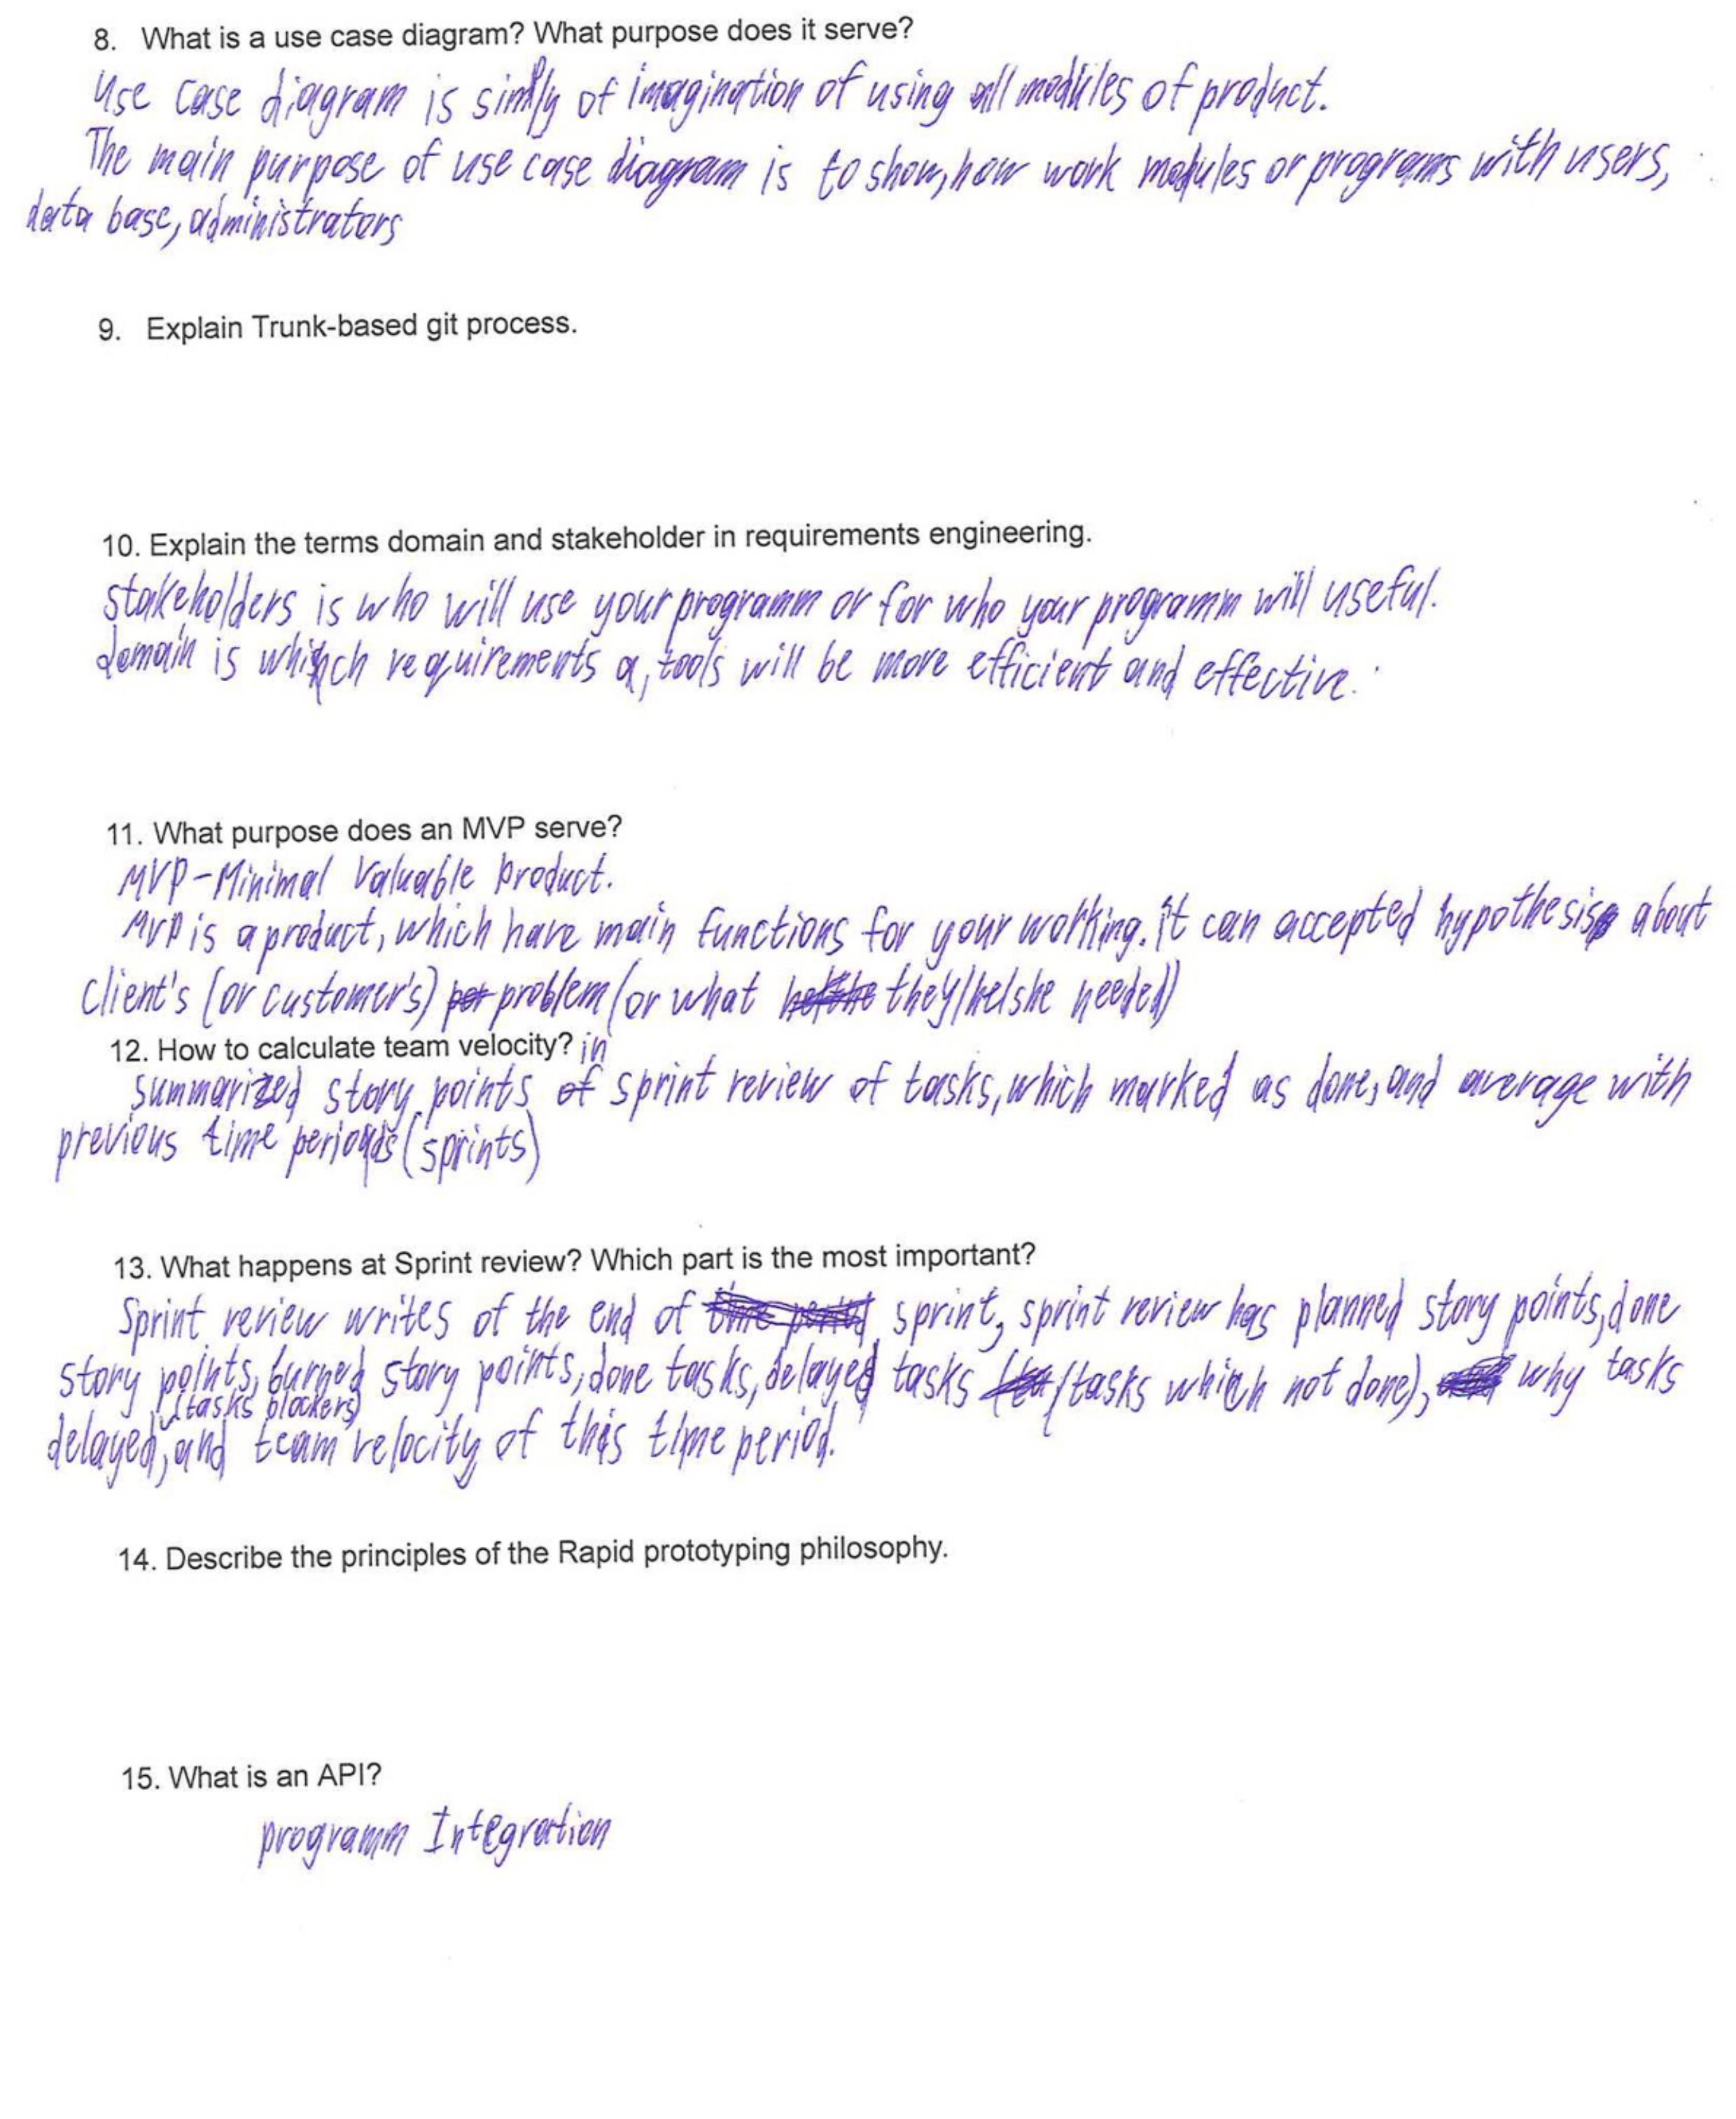 8. What is a use case diagram? What purpose does it serve?
Use case diagram is simply of imagination of using all modules of product.
The main purpose of use case diagram is to show, how work modules or programs with users,
data base, administrators
9. Explain Trunk-based git process.
10. Explain the terms domain and stakeholder in requirements engineering.
stakeholders is who will use your programm or for who your programm will useful.
domain is which requirements a, tools will be more efficient and effective.
11. What purpose does an MVP serve?
MVP - Minimal Valuable Product.
MVP is a product, which have main functions for your working. it can accepted hypothesis about
client's (or customer's) problem (or what they/he/she needed)
12. How to calculate team velocity?
in
summarized story points of sprint review of tasks, which marked as done, and average with
previous time periods (sprints)
13. What happens at Sprint review? Which part is the most important?
Sprint review writes of the end of sprint, sprint review has planned story points, done
story points, burned story points, done tasks, delayed tasks (tasks which not done), why tasks
(tasks blockers)
delayed, and team velocity of this time period.
14. Describe the principles of the Rapid prototyping philosophy.
15. What is an API?
programm Integration